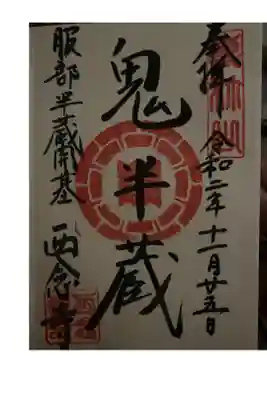 奉拝 令和二年十一月廿五日
鬼半蔵
服部半蔵開基 西念寺